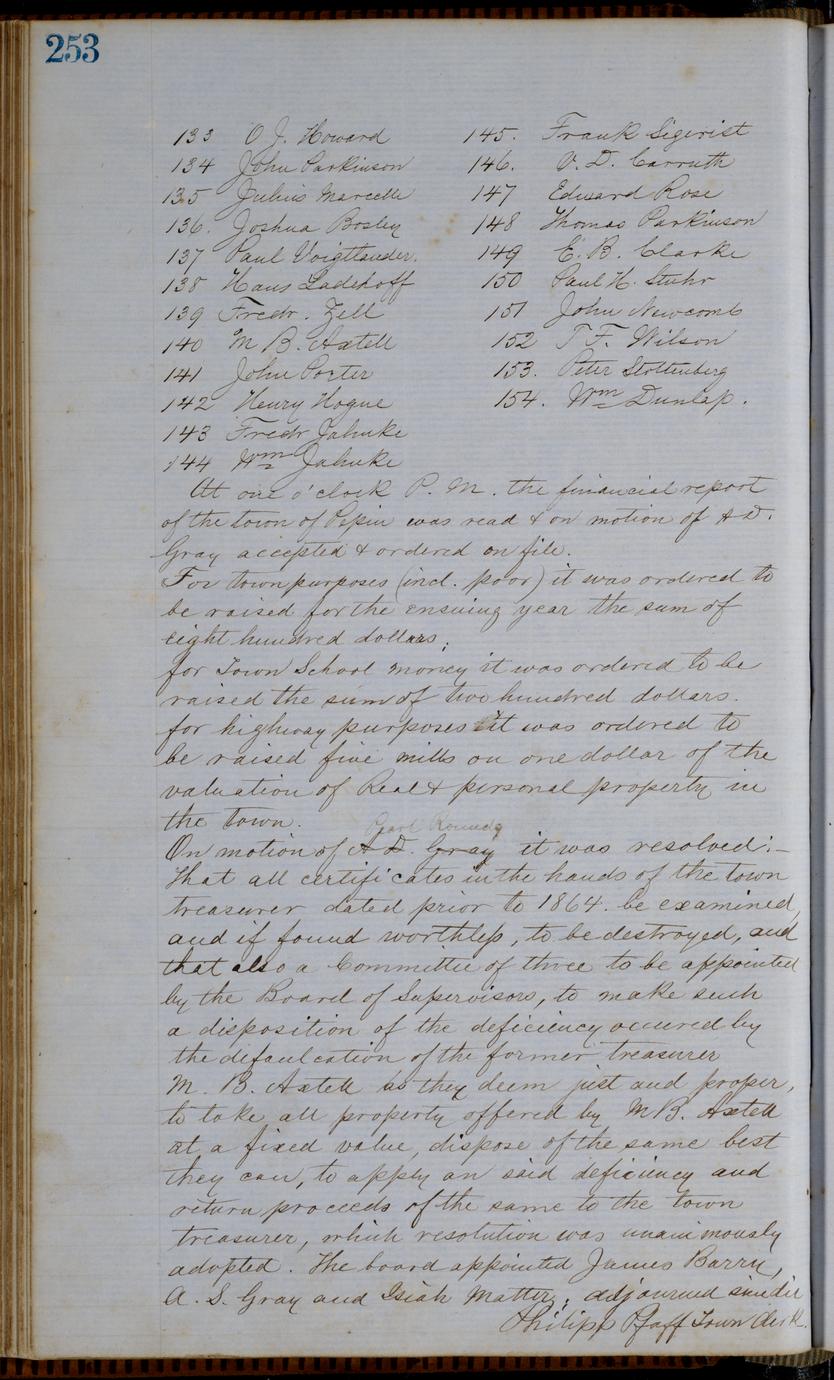 253
133 O. J. Howard
134 John Parkinson
135 Julius Marcelle
136. Joshua Bosley
137 Paul Voigtlander.
138 Hans Ladehoff
139 Fredr. Zell
140 M. B. Axtell
141 John Porter
142 Henry Hogue
143 Fredr Jahnke
144 Wm Jahnke
145. Frank Sigerist
146. V. D. Carruth
147 Edward Rose
148 Thomas Parkinson
149 E. B. Clarke
150 Paul H. Stuhr
151 John Newcomb
152 T. F. Wilson
153. Peter Stoltenberg
154. Wm Dunlap.
At one o'clock P. M. the financial report
of the town of Pepin was read & on motion of A D.
Gray accepted & ordered on file.
For town purposes (incl. poor) it was ordered to
be raised for the ensuing year the sum of
eight hundred dollars;
for Town School money it was ordered to be
raised the sum of two hundred dollars.
for highway purposes it was ordered to
be raised five mills on one dollar of the
valuation of Real & personal property in
the town.
On motion of A D. Gray it was resolved:—
That all certificates in the hands of the town
treasurer dated prior to 1864. be examined,
and if found worthless, to be destroyed, and
that also a Committee of three to be appointed
by the Board of Supervisors, to make such
a disposition of the deficiency occured by
the difaulcation of the former treasurer
M. B. Axtell as they deem just and proper,
to take all property offered by M. B. Axtell
at a fixed value, dispose of the same best
they can, to apply on said deficiency and
return proceeds of the same to the town
treasurer, which resolution was unanimously
adopted. The board appointed James Barry,
A. S. Gray and Isiah Matter; adjourned sinedie
Philipp Pfaff Town Clerk.